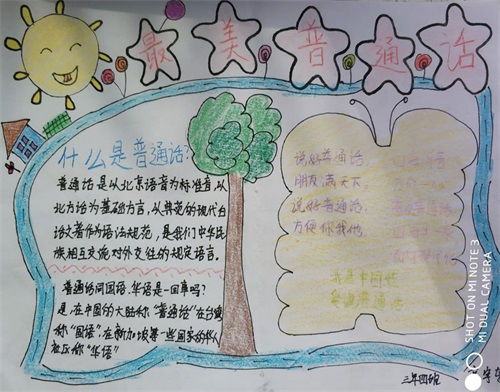 最美普通话
什么是普通话?
普通话是以北京语音为标准音,以
北方话为基础方言,以典范的现代白
话文著作为语法规范,是我们中华民
族相互交流对外交往的规定语言。
普通话同国语、华语是一回事吗?
是,在中国的大陆称"普通话"在台湾
称"国语",在新加坡等一些国家的华人
社区称"华语"
说好普通话,
朋友满天下
说好普通话,
方便你我他,
我是中国娃
爱说普通话
三年四班
SHOT ON MI NOTE 3
MI DUAL CAMERA